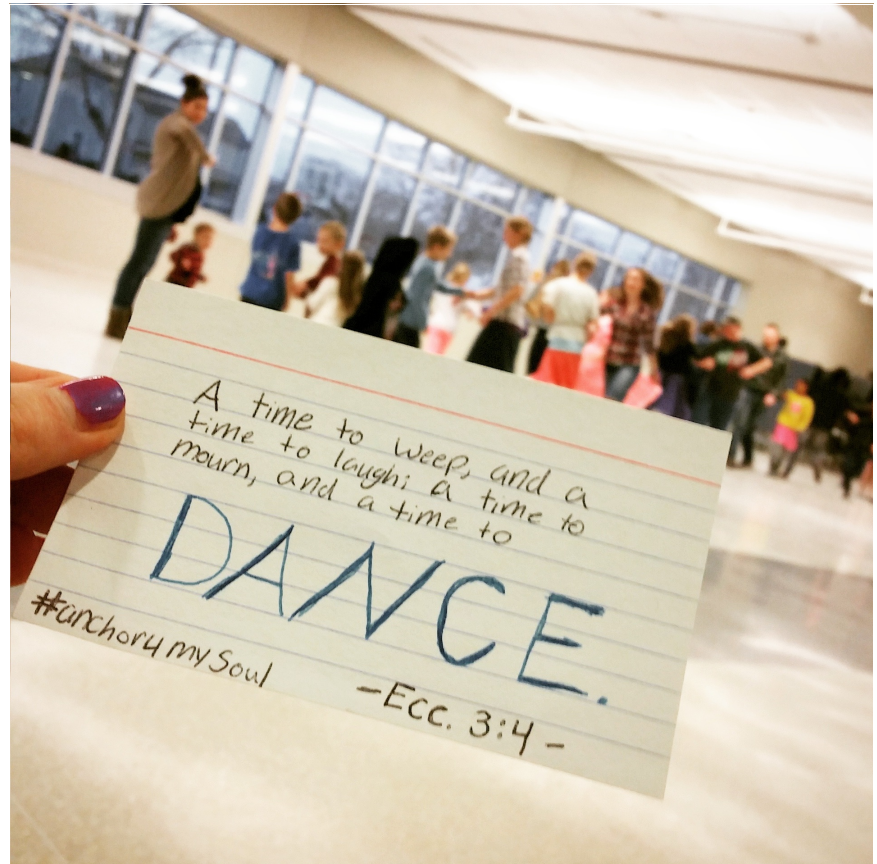 A time to weep, and a
time to laugh; a time to
mourn, and a time to
DANCE.
#anchor4mySoul
-Ecc. 3:4-